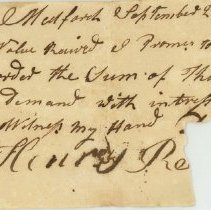 Medford September 2
Value Rceived I Promes to
orded the Sum of Th
Demand with intress
Witness my Hand
Henry Re